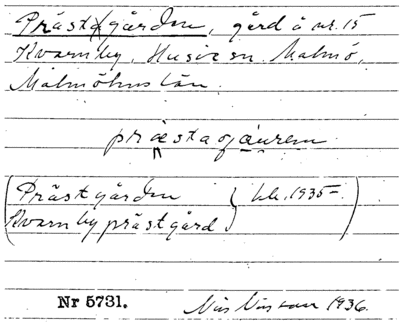 Prästagården, gård å nr. 15
Kvarnby, Husie sn. Malmö,
Malmöhus län.
præstagjåuren
(Prästgården
Kvarnby prästgård } hbl. 1935-)
Nr 5731. Nils Nilsson 1936.